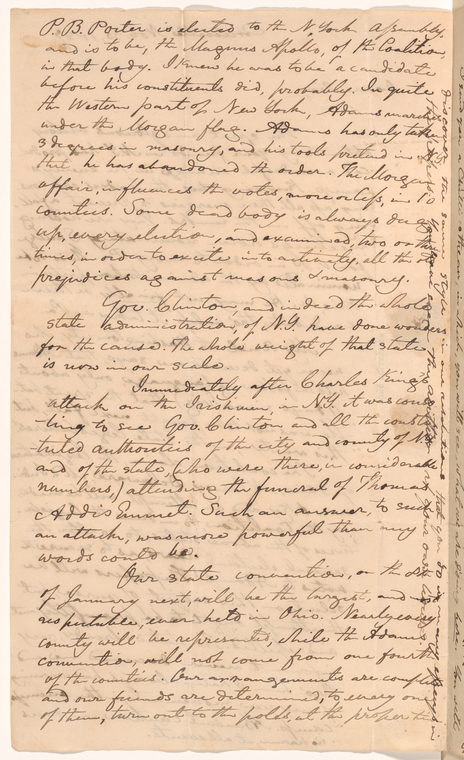 P. B. Porter is elected to the N. York Assembly,
and is to be, the Magnus Apollo, of the Coalition,
in that body. I knew he was to be a candidate
before his constituents did, probably. In quite
the Western part of New York, Adams marches
under the Morgan flag. Adams has only taken
3 degrees in masonry, and his tools pretend
that he has abandoned the order. The Morgan
affair, influences the votes, more or less, in 10
counties. Some dead body is always dug
up, every election, and examined, two or three
times, in order to excite into activity, all the
prejudices against masons & masonry.
Gov. Clinton, and indeed the whole
state administration, of N.Y. have done wonders
for the cause. The whole weight of that state
is now in our scale.
Immediately after Charles King's
attack on the Irishmen, in N.Y. it was
ting to see Gov. Clinton and all the consti
tuted authorities of the city and county of N.
and of the state, (who were there, in considerable
numbers,) attending the funeral of Thomas
Addis Emmet. Such an answer, to such
an attack, was more powerful than any
words could be.
Our state convention, on the
of January next, will be the largest, and
respectable, ever held in Ohio. Nearly every
county will be represented, while the Adams
convention, will not come from one fourth
of the counties. Our arrangements are complete
and our friends are determined, to every one
of them, turn out to the polls, at the proper